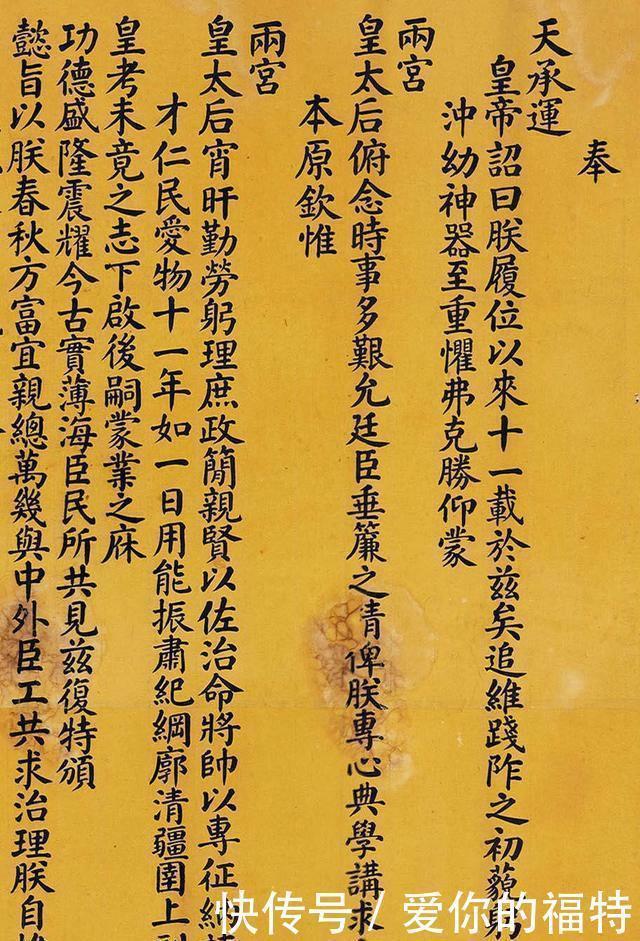 奉
天承運
皇帝詔曰朕履位以來十一載於茲矣追維踐阼之初藐
沖幼神器至重懼弗克勝仰蒙
兩宮
皇太后俯念時事多艱允廷臣垂簾之請俾朕專心典學講求
本原欽惟
兩宮
皇太后宵旰勤勞躬理庶政簡親賢以佐治命將帥以專征納
才仁民愛物十一年如一日用能振肅紀綱廓清疆圉上
皇考未竟之志下啟後嗣蒙業之庥
功德盛隆震耀今古實薄海臣民所共見茲復特頒
懿旨以朕春秋方富宜親總萬幾與中外臣工共求治理朕自
快传号/爱你的福特